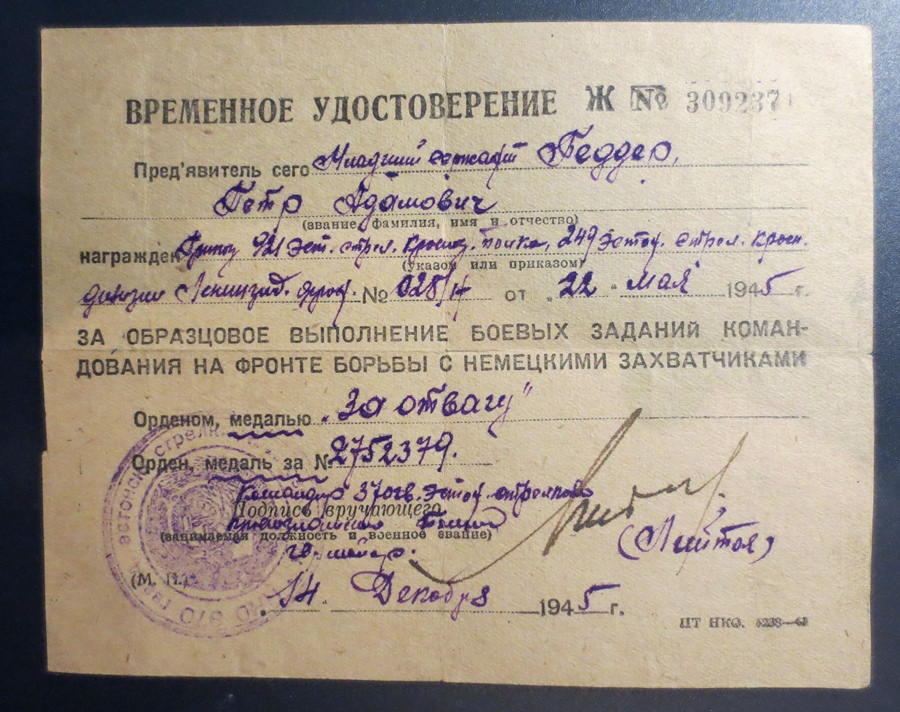 ВРЕМЕННОЕ УДОСТОВЕРЕНИЕ Ж № 309237
Пред'явитель сего Младший сержант Феддер,
Петр Адамович
(звание, фамилия, имя и отчество)
награжден 921 Эст. стрел. Красноз. полка, 249 Эстон. стрел. Красн.
(указом или приказом)
дивизии № 028/н от "22" мая 1945 г.
ЗА ОБРАЗЦОВОЕ ВЫПОЛНЕНИЕ БОЕВЫХ ЗАДАНИЙ КОМАН-
ДОВАНИЯ НА ФРОНТЕ БОРЬБЫ С НЕМЕЦКИМИ ЗАХВАТЧИКАМИ
Орденом, медалью „За отвагу"
Орден, медаль за № 2752379.
Командир 37 гв. Эстон. стрелкового
Подпись вручающего
полка
(занимаемая должность и военное звание)
гв. майор.
(М. П.)
14 Декабря 1945 г.
ЦТ НКО.